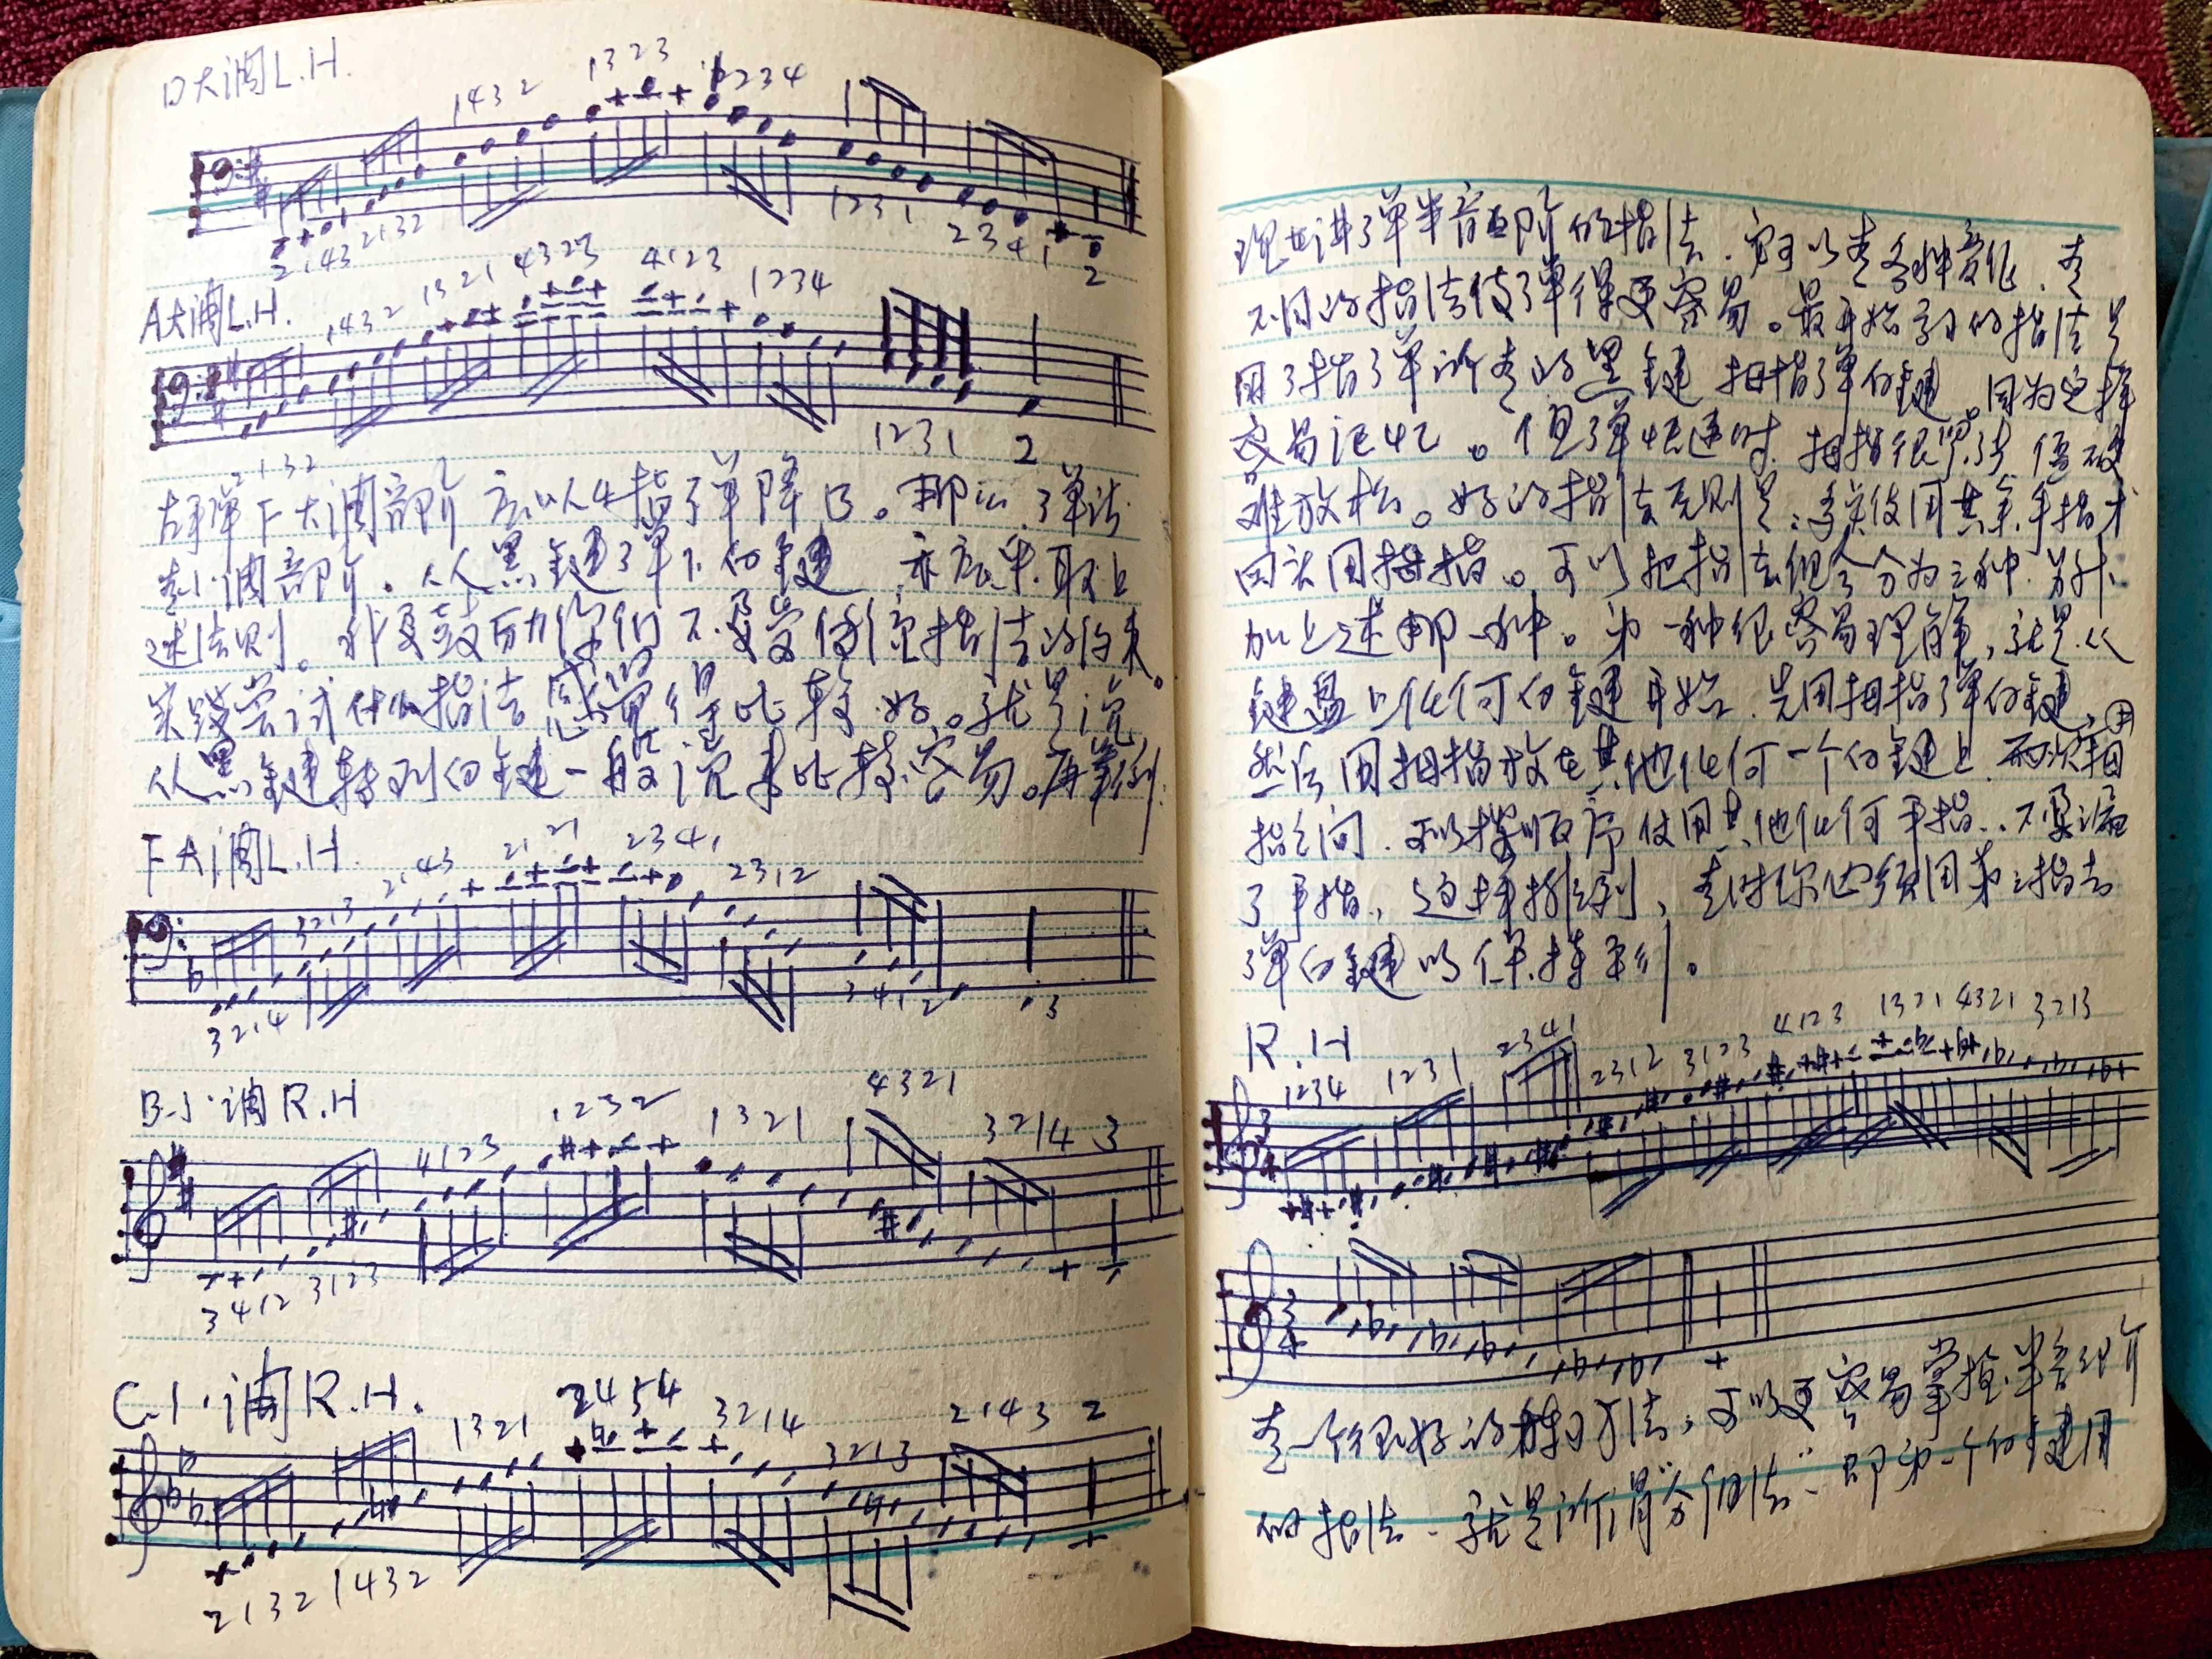 D大调L.H.
1432 1323 1234
2143 2132 1231 2341 2
A大调L.H.
1432 1321 4323 4123 1234
2132 1231 2
右手弹F大调音阶应以4指弹降B。那么,弹法
小调音阶。从黑键弹下白键,亦应采取上
述法则。我更鼓励你们不要受传统指法的约束。
实践尝试什么指法感觉得比较好。就是说
从黑键转到白键一般说来比较容易。再举例:
F大调L.H.
3213 2143 21 21 2341 2312
3214 3412 3
B小调R.H
4123 1232 1321 4321 3214 3
3412 3123
C小调R.H.
1321 2454 3214 3213 2143 2
2132 1432
现世讲弹半音阶的指法.可以有各种变化.有
不同的指法使弹得更容易。最开始学习的指法是
用3指弹所有的黑键 拇指弹白键。因为这样
容易记忆。但弹快速时.拇指很紧张 僵硬
难放松。好的指法原则是:多关使用其余手指才
回去用拇指。可以把指法组合分为三种.另外
加上述那一种。第一种很容易理解,就是从
键盘上任何白键开始.先用拇指弹白键,
然后用拇指放在其他任何一个白键上.两次用拇
指之间.可以按顺序使用其他任何手指..不要漏
了手指,这样排列,有时你必须用第二指去
弹白键以保持平衡。
R.H
1234 1231 2341 2312 3123 4123 1321 4321 3213
有一个很好的练习方法,可以更容易掌握半音阶
的指法.就是所谓“分组法”.即第一个白键用